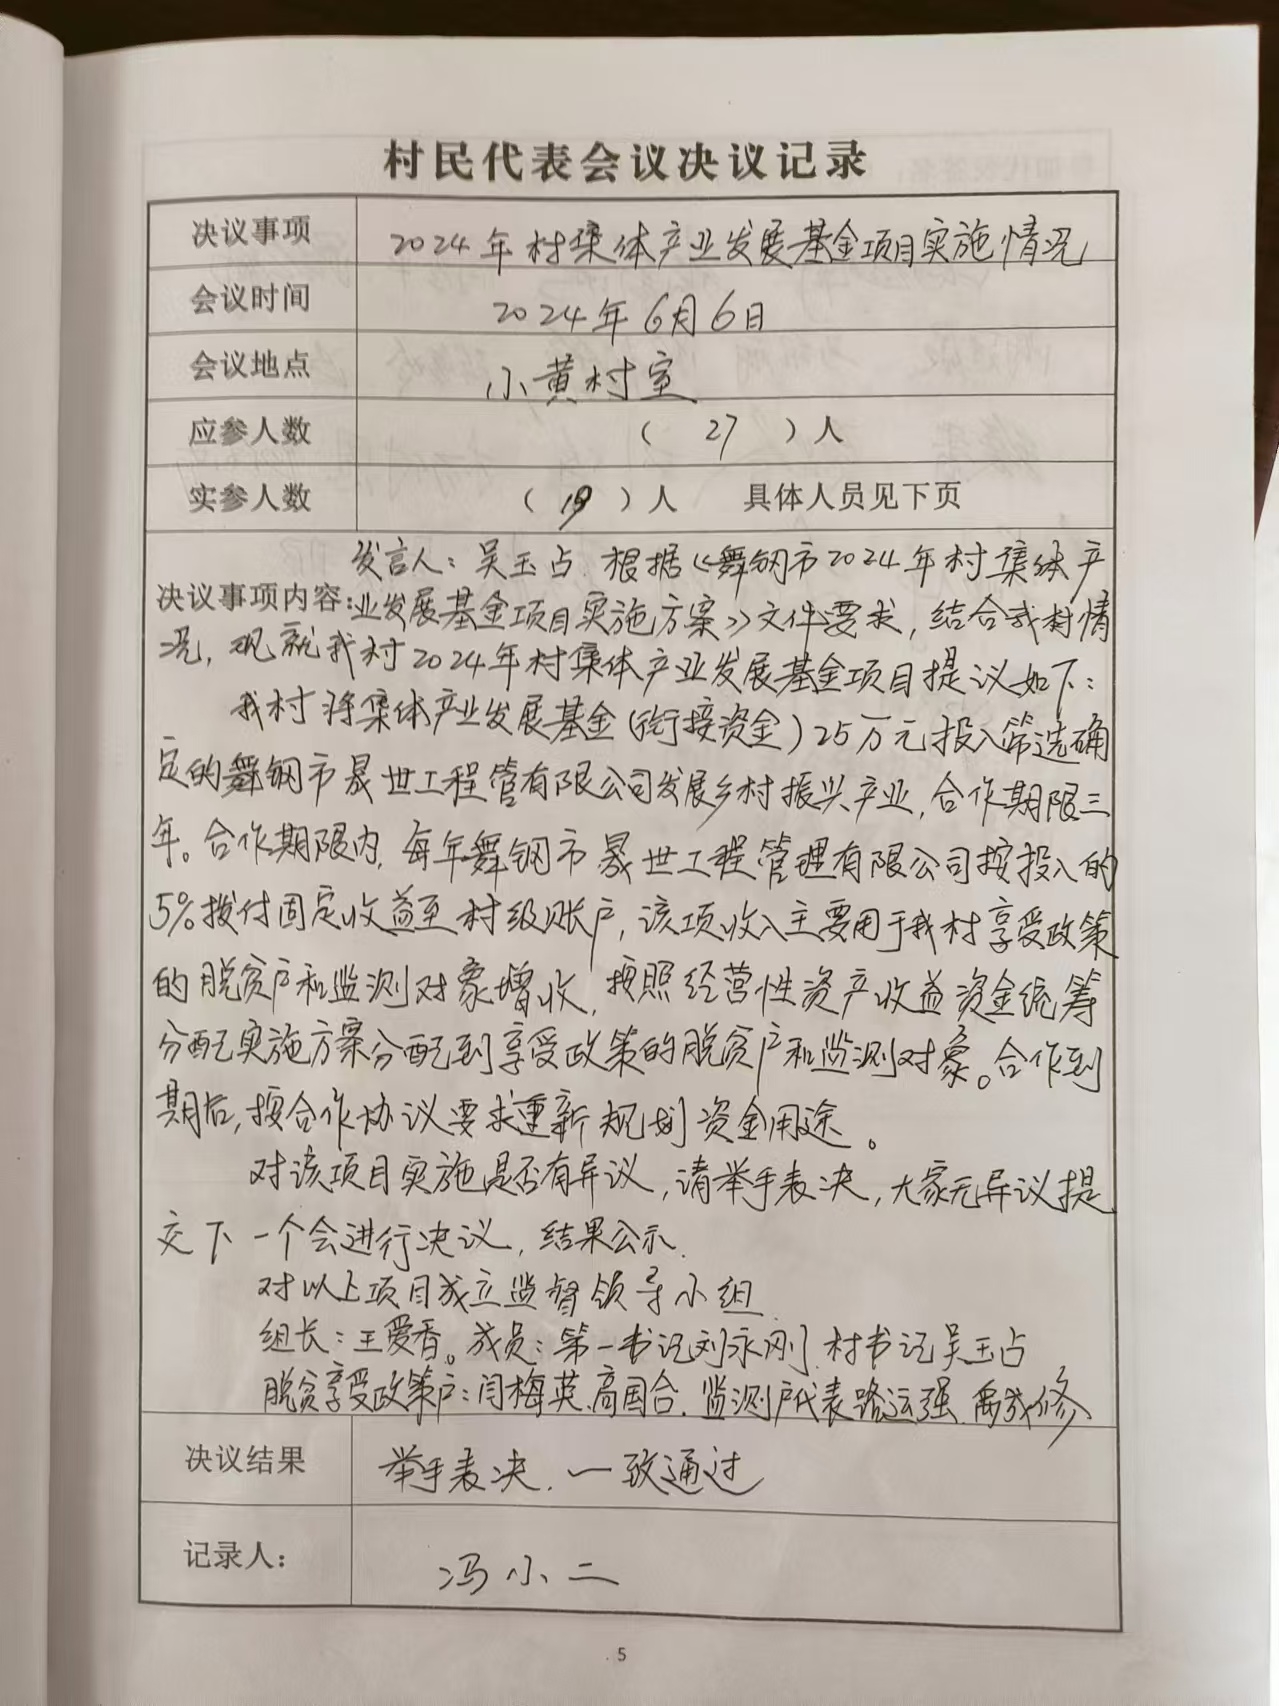 村民代表会议决议记录
决议事项 2024年村集体产业发展基金项目实施情况
会议时间 2024年6月6日
会议地点 小黄村室
应参人数 ( 27 )人
实参人数 ( 19 )人 具体人员见下页
发言人：吴玉占 根据《舞钢市2024年村集体产
决议事项内容：业发展基金项目实施方案》文件要求，结合我村情
况，现就我村2024年村集体产业发展基金项目提议如下：
我村将集体产业发展基金(衔接资金)25万元投入筛选确
定的舞钢市晟世工程管有限公司发展乡村振兴产业，合作期限三
年。合作期限内，每年舞钢市晟世工程管理有限公司按投入的
5%拨付固定收益至村级账户，该项收入主要用于我村享受政策
的脱贫户和监测对象增收，按照经营性资产收益资金统筹
分配实施方案分配到享受政策的脱贫户和监测对象。合作到
期后，按合作协议要求重新规划资金用途。
对该项目实施是否有异议，请举手表决，大家无异议提
交下一个会进行决议，结果公示.
对以上项目成立监督领导小组
组长：王爱香。成员：第一书记刘永刚.村书记吴玉占
脱贫享受政策户：闫梅英.高国合.监测户代表路运强.修
决议结果 举手表决.一致通过
记录人： 冯小二
5